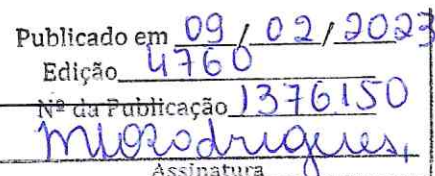 Publicado em 09/02/2023
Edição 4760
Nº da Publicação 1376150
Assinatura